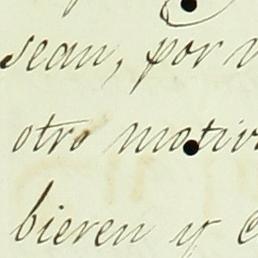 sean, por
otro motivo
bieren y